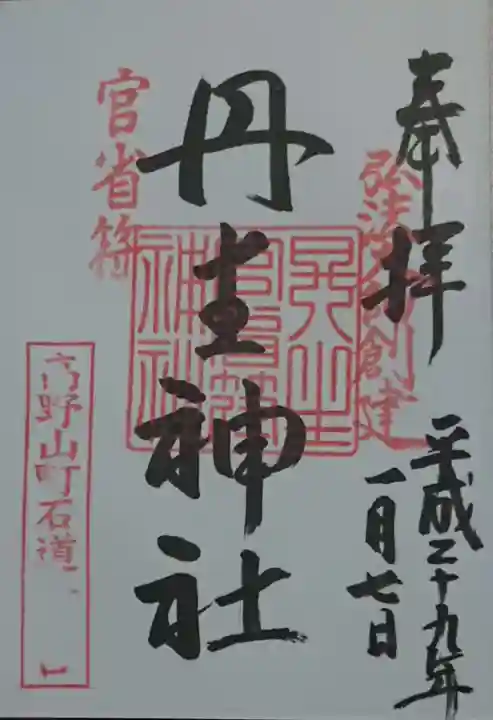 奉拝
弘法大師創建
平成二十九年
一月七日
丹生神社
官省符
高野山町石道